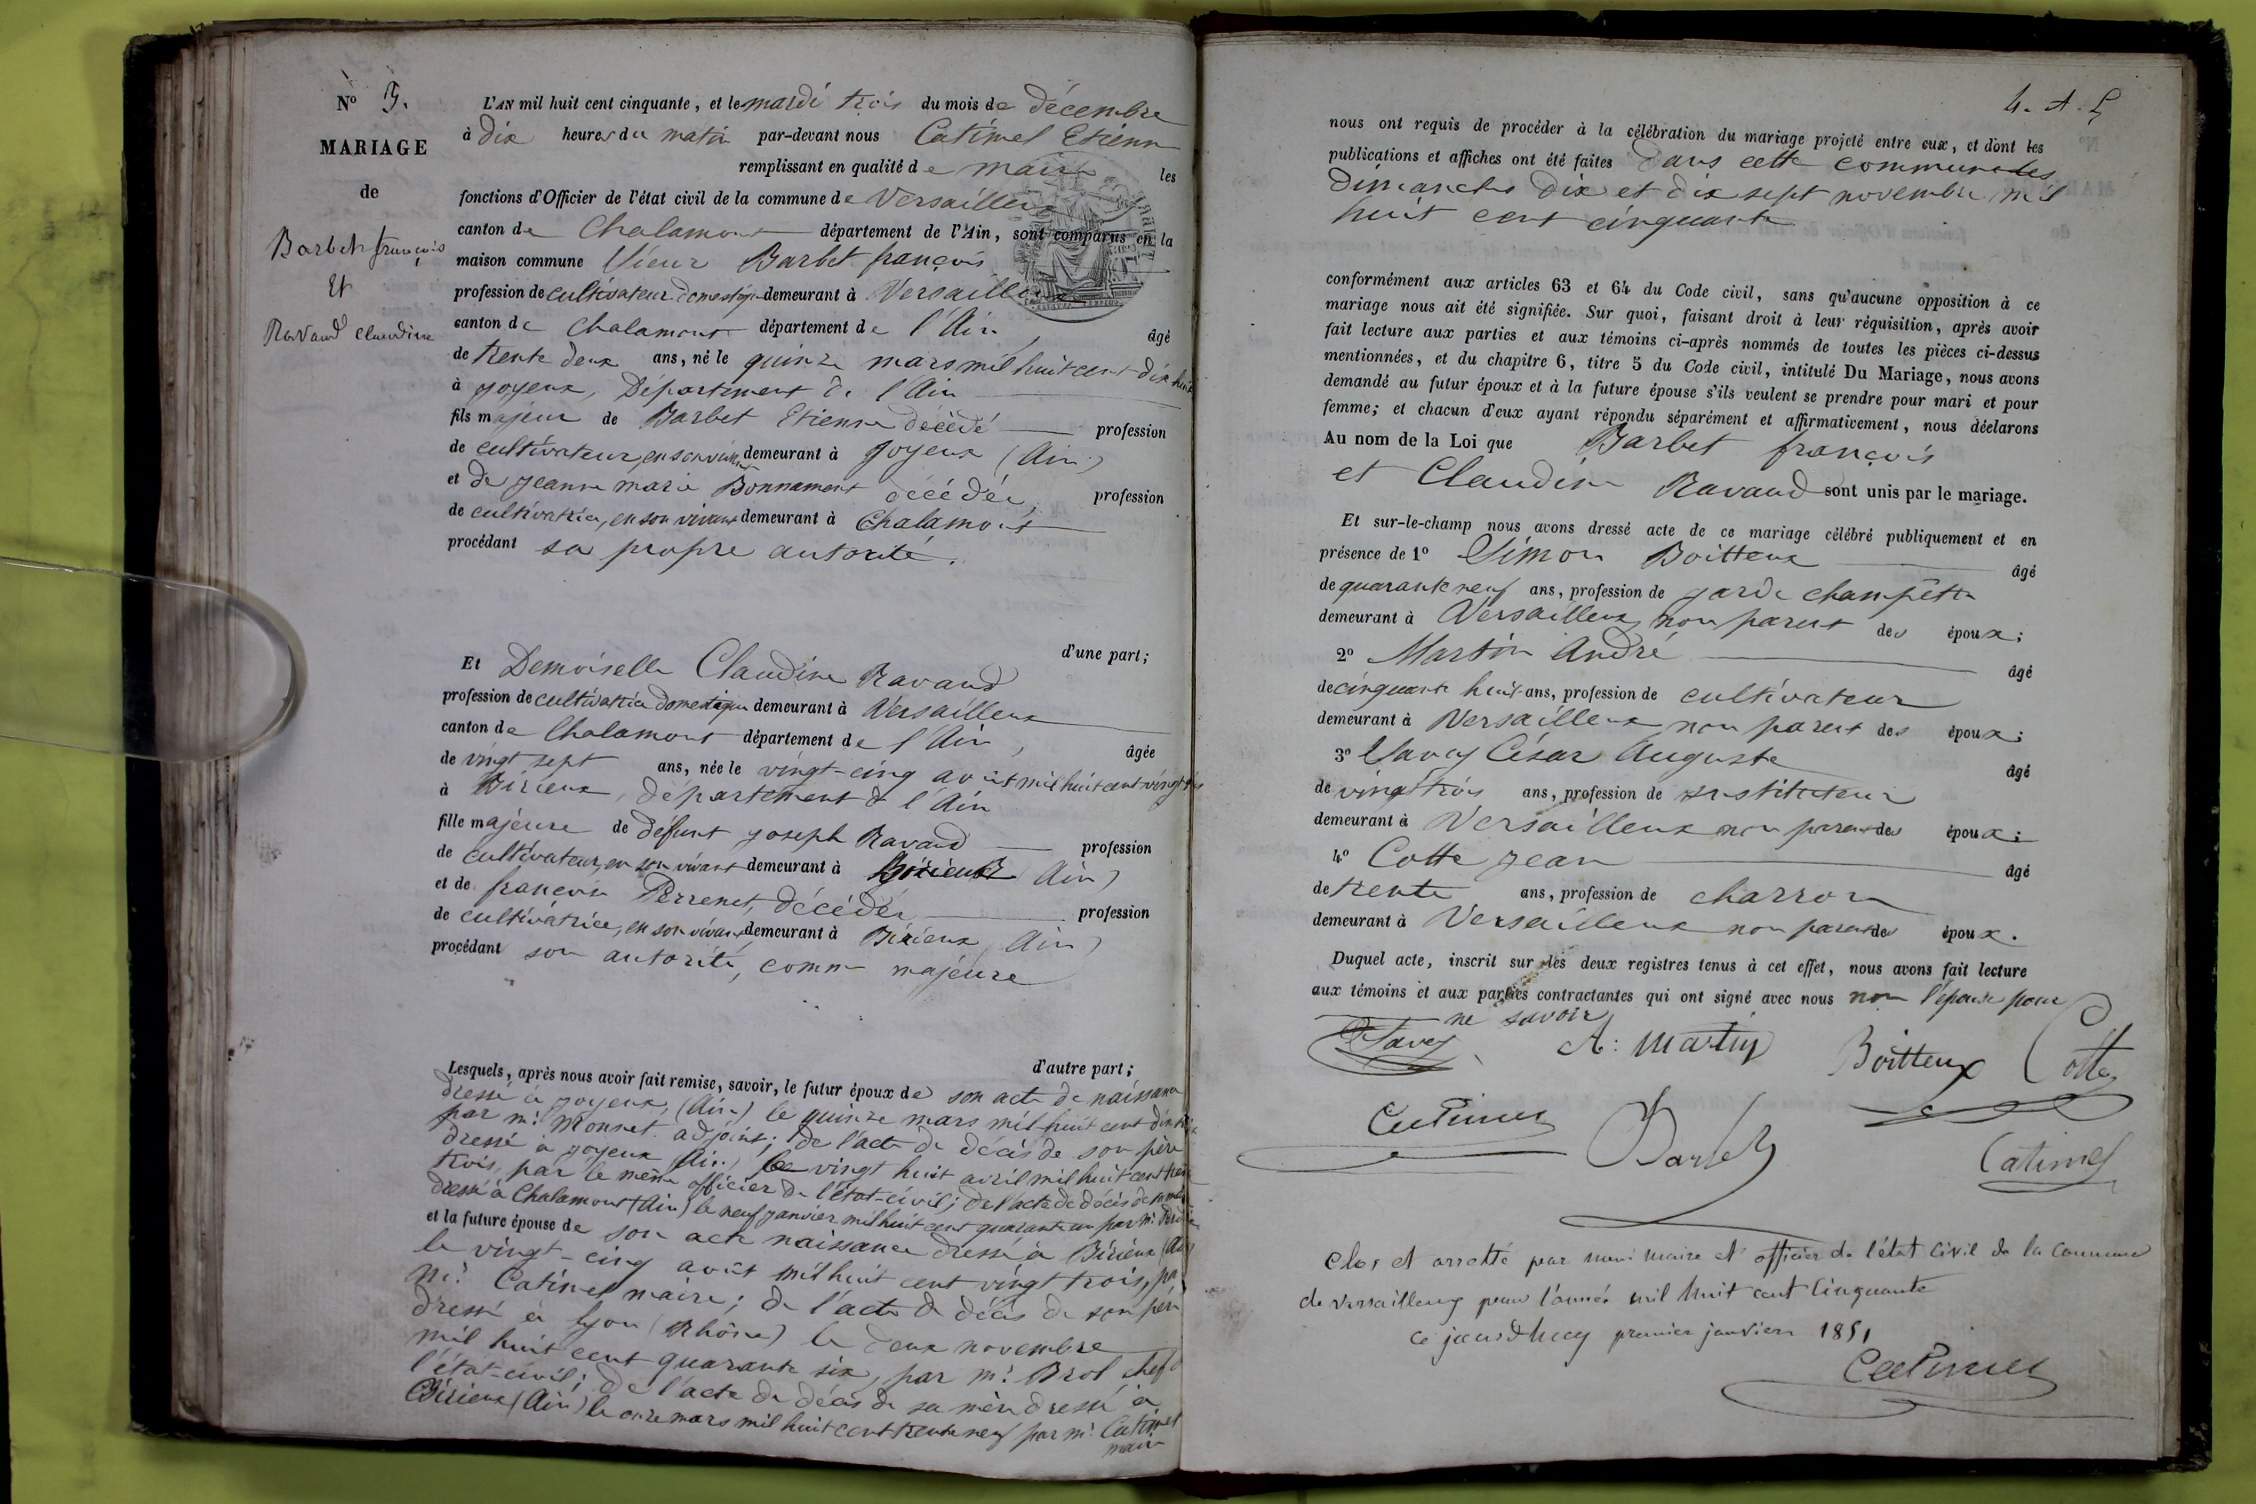 Nº 5.
MARIAGE
de
Barbet françois
Et
Ravaud claudine
L'AN mil huit cent cinquante, et le mardi trois du mois de décembre
à dix heures du matin par-devant nous Catimel Etienne
remplissant en qualité de maire les
fonctions d'Officier de l'état civil de la commune de Versailleux
canton de Chalamont département de l'Ain, sont comparus en la
maison commune Sieur Barbet françois
profession de cultivateur domestique demeurant à Versailleux
canton de Chalamont département de l'Ain, âgé
de trente deux ans, né le quinze mars mil huit cent dix huit
à joyeux, Département de l'Ain
fils majeur de Barbet Etienne décédé profession
de cultivateur, en son vivant demeurant à joyeux (Ain)
et de jeanne marie Bonnament décédée, profession
de cultivatrice, en son vivant demeurant à Chalamont
procédant sa propre autorité.
d'une part;
Et Demoiselle Claudine Ravaud
profession de cultivatrice domestique demeurant à Versailleux
canton de Chalamont département de l'Ain, âgée
de vingt sept ans, née le vingt-cinq août mil huit cent vingt trois
à Birieux, département de l'Ain
fille majeure de defunt joseph Ravaud profession
de cultivateur, en son vivant demeurant à Birieux (Ain)
et de françoise Perrenet, décédée profession
de cultivatrice, en son vivant demeurant à Birieux (Ain)
procédant son autorité, comme majeure
d'autre part;
Lesquels, après nous avoir fait remise, savoir, le futur époux de son acte de naissance
dressé à joyeux, (Ain) le quinze mars mil huit cent dix huit
par mr. Monnet adjoint; de l'acte de décès de son père
dressé à joyeux (Ain) le vingt huit avril mil huit cent
trois, par le même officier de l'état-civil; de l'acte de décès de sa mère
dressé à Chalamont (Ain) le neuf janvier mil huit cent quarante un par mr.
et la future épouse de son acte naissance dressé à Birieux (Ain)
le vingt-cinq août mil huit cent vingt trois, par
mr. Catimel maire; de l'acte de décès de son père
dressé à lyon (Rhône) le deux novembre
mil huit cent quarante six, par mr. Brol chef d
l'état-civil; de l'acte de décès de sa mère dressé à
Birieux (Ain) le onze mars mil huit cent trente neuf par mr. Catimel
maire
4.
nous ont requis de procéder à la célébration du mariage projeté entre eux, et dont les
publications et affiches ont été faites dans cette commune les
dimanches dix et dix sept novembre mil
huit cent cinquante
conformément aux articles 63 et 64 du Code civil, sans qu'aucune opposition à ce
mariage nous ait été signifiée. Sur quoi, faisant droit à leur réquisition, après avoir
fait lecture aux parties et aux témoins ci-après nommés de toutes les pièces ci-dessus
mentionnées, et du chapitre 6, titre 5 du Code civil, intitulé Du Mariage, nous avons
demandé au futur époux et à la future épouse s'ils veulent se prendre pour mari et pour
femme; et chacun d'eux ayant répondu séparément et affirmativement, nous déclarons
Au nom de la Loi que Barbet françois
et Claudine Ravaud sont unis par le mariage.
Et sur-le-champ nous avons dressé acte de ce mariage célébré publiquement et en
présence de 1º Simon Boitteux âgé
de quarante neuf ans, profession de garde champêtre
demeurant à Versailleux non parent des époux;
2º Martin André âgé
de cinquante huit ans, profession de cultivateur
demeurant à Versailleux non parent des époux;
3º Savey César Auguste âgé
de vingt trois ans, profession de instituteur
demeurant à Versailleux non parent des époux;
4º Cotte jean âgé
de trente ans, profession de charron
demeurant à Versailleux non parent des époux.
Duquel acte, inscrit sur les deux registres tenus à cet effet, nous avons fait lecture
aux témoins et aux parties contractantes qui ont signé avec nous non l'épouse pour
ne savoir
Savey A. Martin Boitteux Cotte
Catimel Barbet Catimel
Clos et arretté par nous maire et officier de l'état civil de la commune
de versailleux pour l'année mil huit cent cinquante
ce jourd'huy premier janvier 1851
Catimel